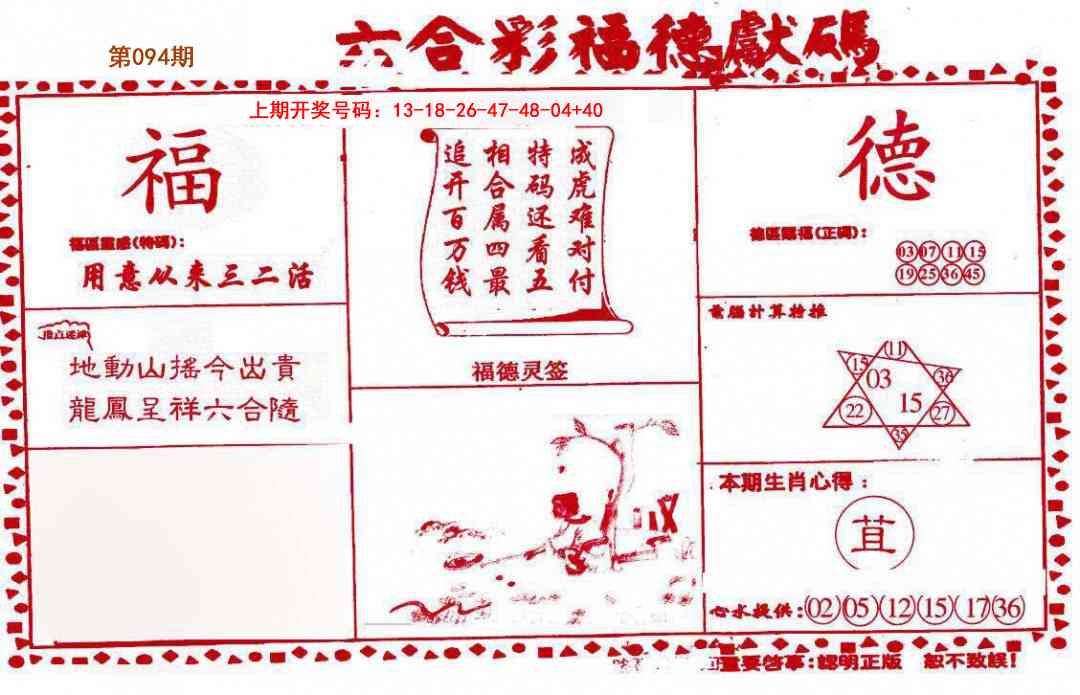 六合彩福德獻碼
第094期
上期开奖号码：13-18-26-47-48-04+40
福
福區靈感(特碼)：
用意从来三二活
地動山搖今出貴
龍鳳呈祥六合隨
成虎难对付
特码还看五
相合属四最
追开百万钱
福德灵签
德
德區賜福(正碼)：
03 07 11 15
19 25 36 45
電腦計算特推
11
15 03 36
22 15 27
35
本期生肖心得：
苴
心水提供：02 05 12 15 17 36
重要啓事：認明正版 恕不致誤！